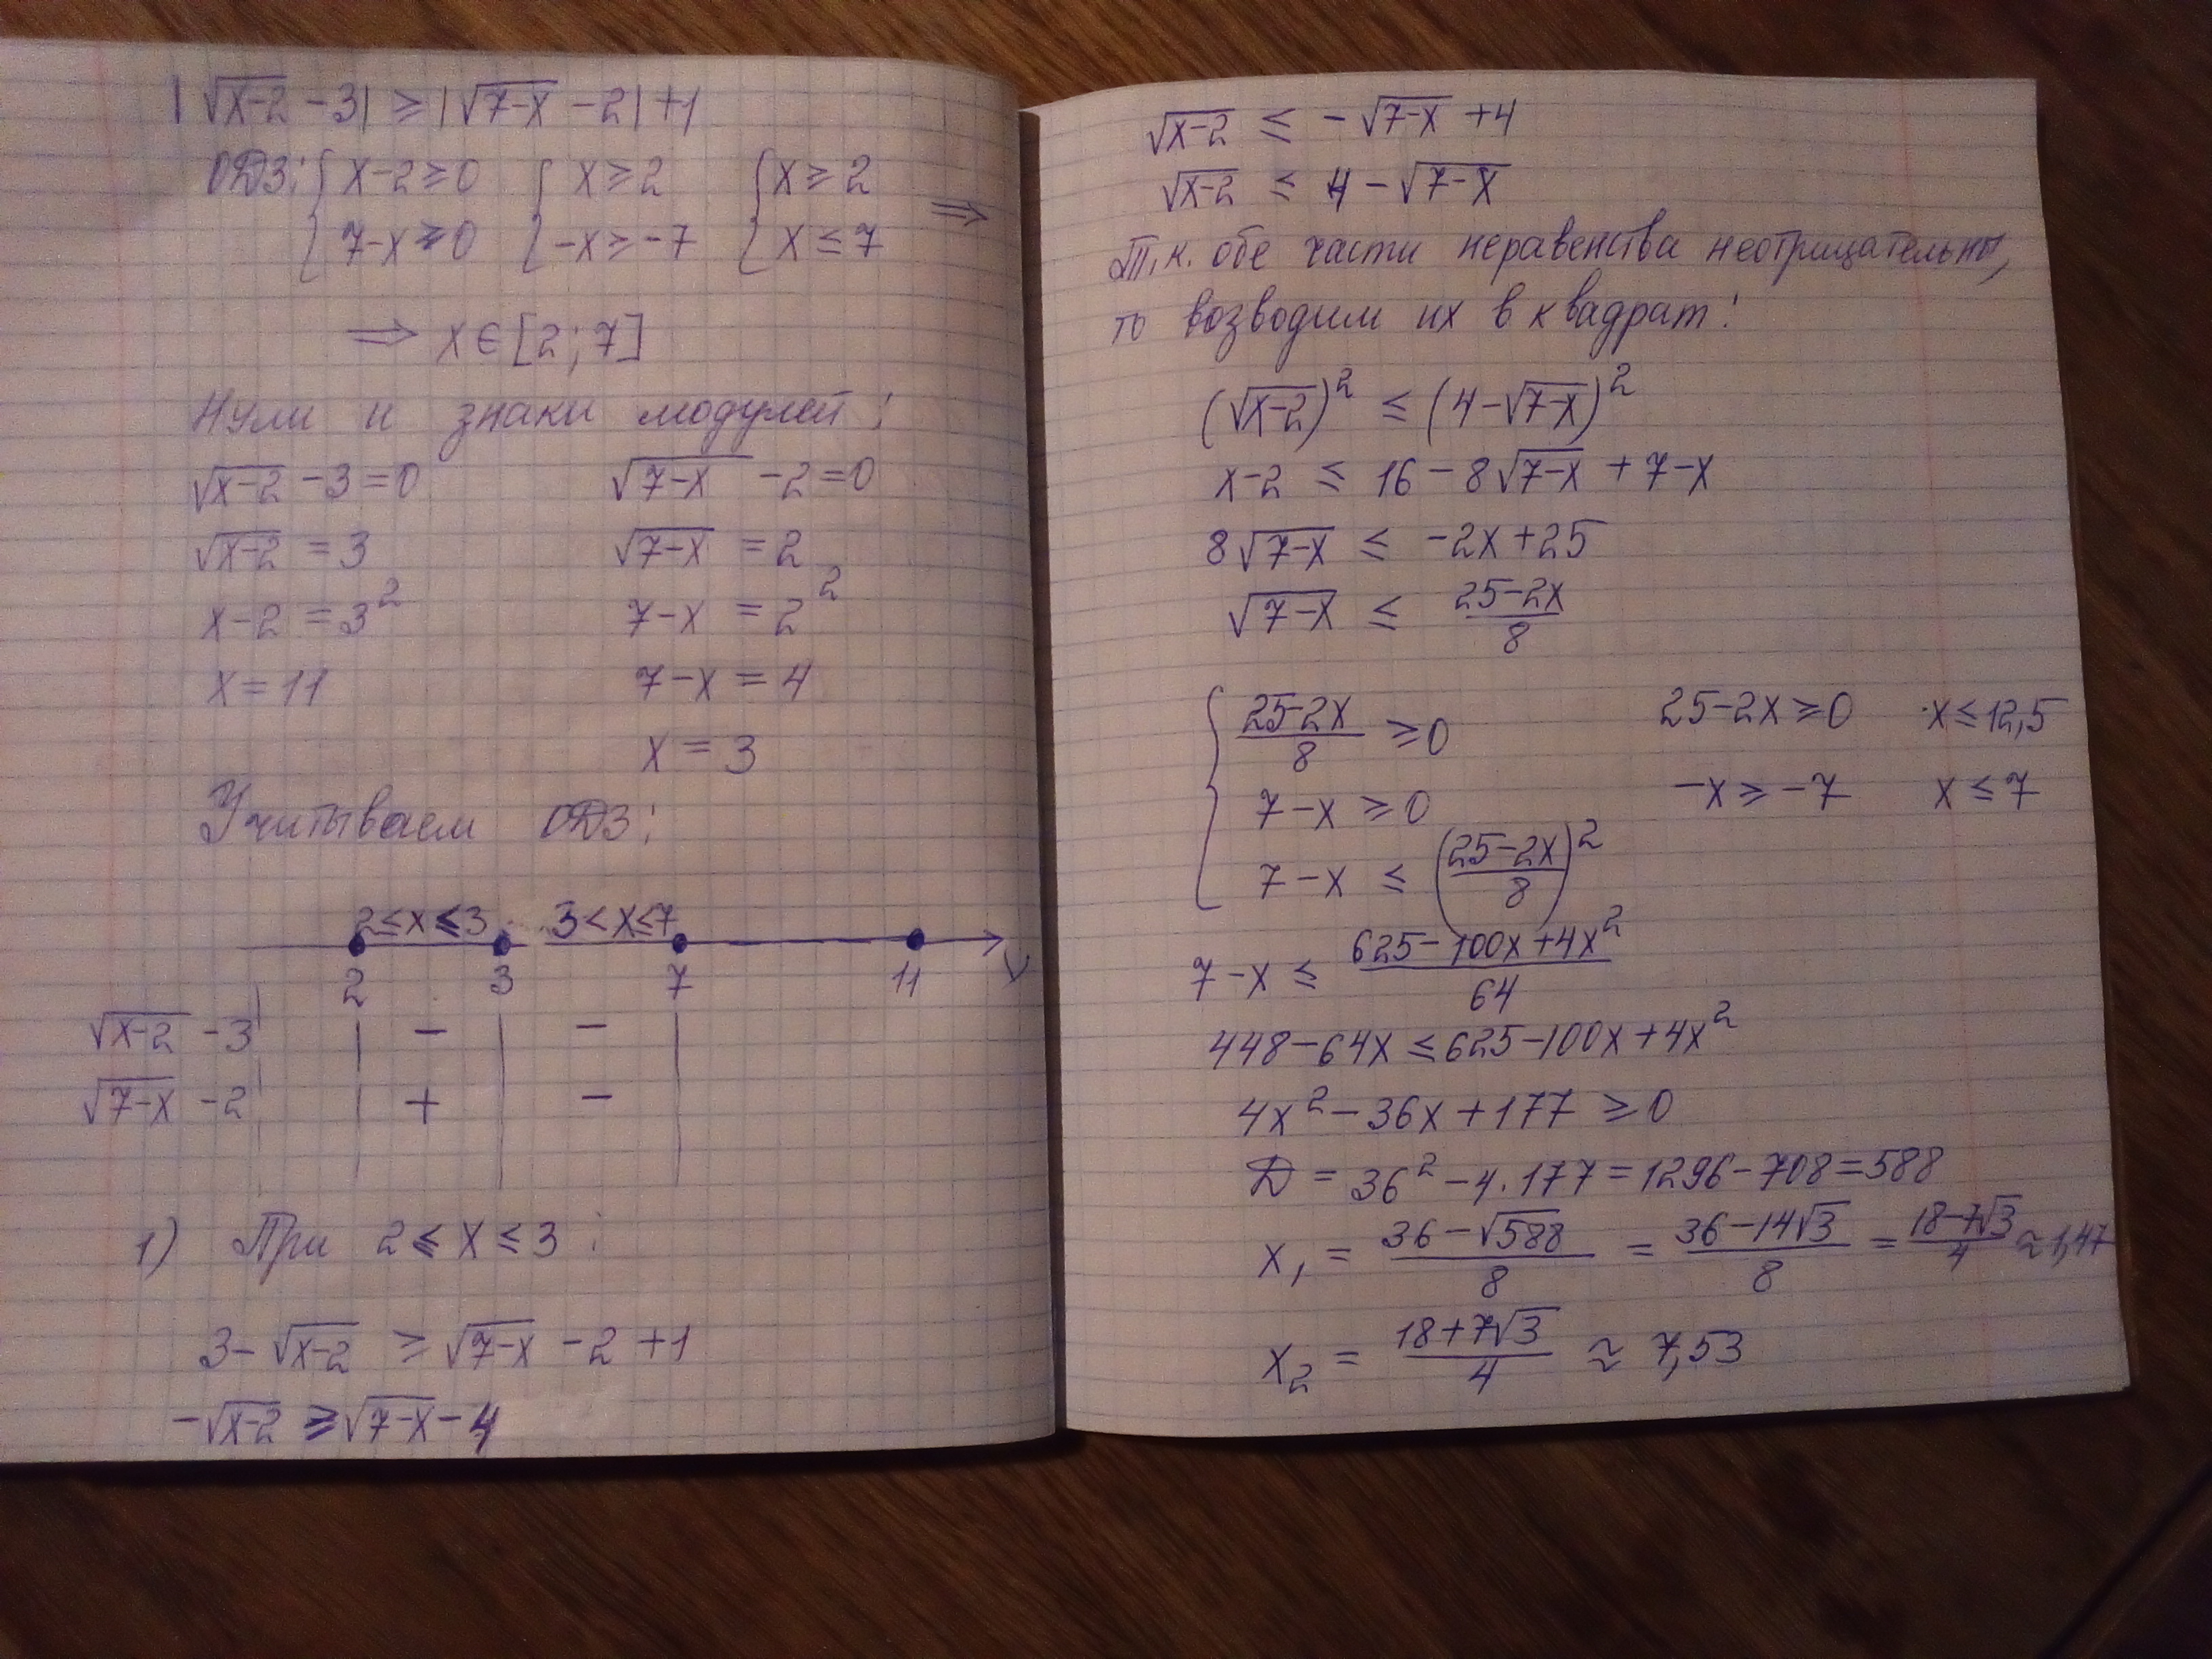 |√(x-2) -3| ≥ |√(7-x) -2| +1
ОДЗ: { x-2≥0 { x≥2 { x≥2
{ 7-x≥0 { -x≥-7 { x≤7 ⇒
⇒ x∈[2;7]
Нули и знаки модулей:
√(x-2) -3=0 √(7-x) -2=0
√(x-2) =3 √(7-x) =2
x-2 =3² 7-x =2²
x=11 7-x =4
x=3
Учитываем ОДЗ:
2≤x≤3 3<x≤7
2 3 7 11 x
√(x-2) -3 - -
√(7-x) -2 + -
1) При 2≤x≤3:
3-√(x-2) ≥ √(7-x) -2+1
-√(x-2) ≥ √(7-x) -4
√(x-2) ≤ -√(7-x) +4
√(x-2) ≤ 4-√(7-x)
Т.к. обе части неравенства неотрицательны,
то возводим их в квадрат:
(√(x-2))² ≤ (4-√(7-x))²
x-2 ≤ 16-8√(7-x) +7-x
8√(7-x) ≤ -2x+25
√(7-x) ≤ (25-2x)/8
{ (25-2x)/8 ≥0 25-2x≥0 x≤12,5
7-x≥0 -x≥-7 x≤7
7-x ≤ ((25-2x)/8)²
7-x ≤ (625-100x+4x²)/64
448-64x ≤ 625-100x+4x²
4x²-36x+177 ≥0
D = 36²-4·177=1296-708=588
x₁ = (36-√588)/8 = (36-14√3)/8 = (18-7√3)/4 ≈1,47
x₂ = (18+7√3)/4 ≈ 7,53